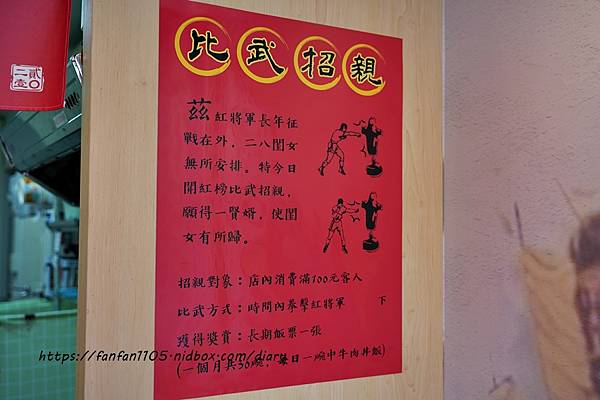 貳〇
二壹
比武招親
茲紅將軍長年征
戰在外，二八閨女
無所安排。特今日
開紅榜比武招親，
願得一賢婿，使閨
女有所歸。
招親對象：店內消費滿100元客人
比武方式：時間內拳擊紅將軍 下
獲得獎賞：長期飯票一張
(一個月共30碗，每日一碗中牛肉丼飯)
https://fanfan1105.nidbox.com/diary